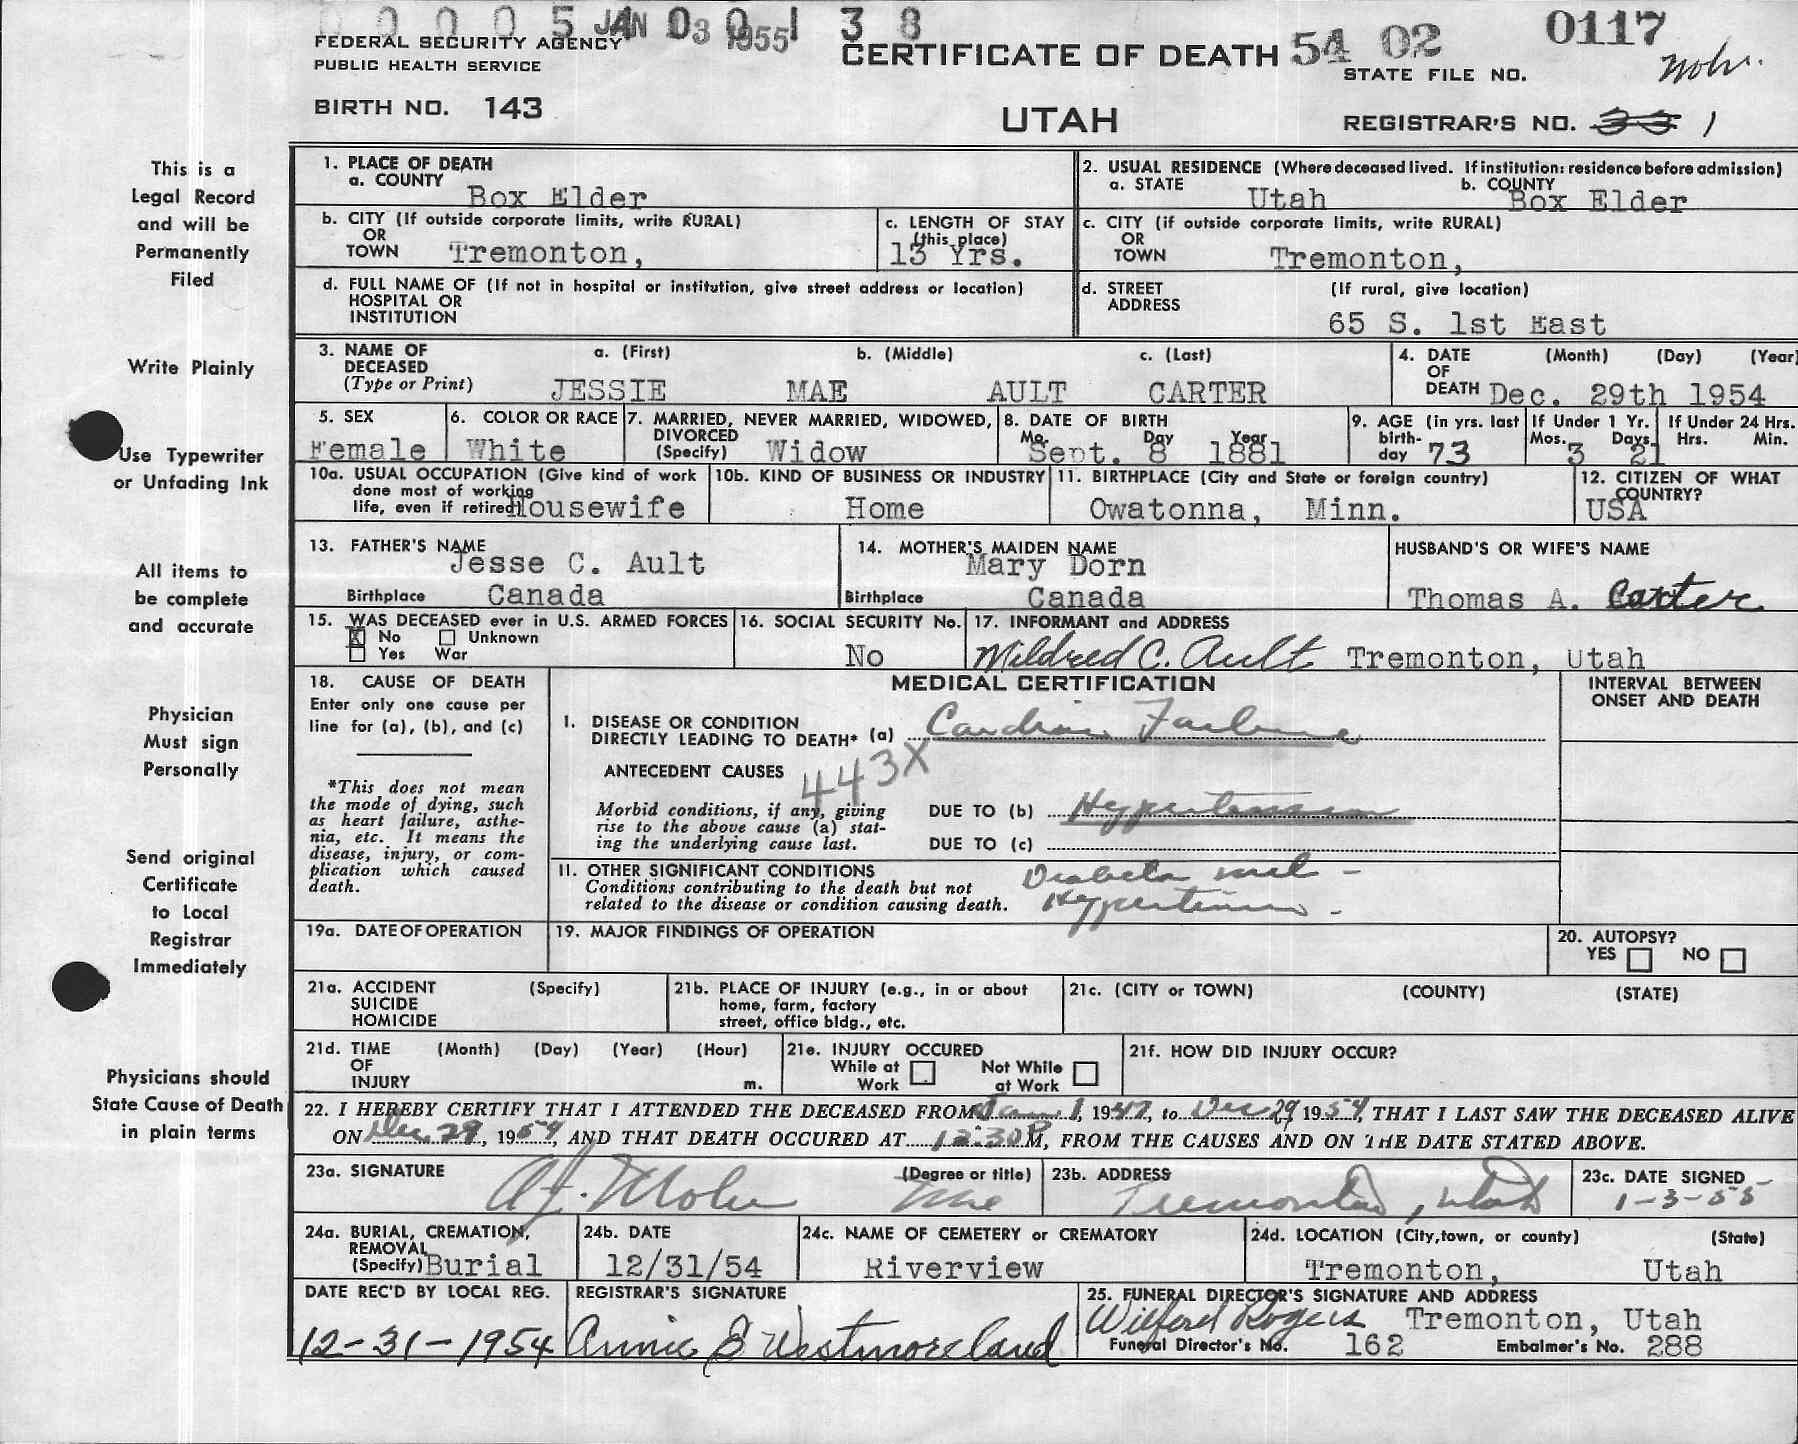 0 0 0 0 5 JAN 03 1955 0 1 3 8
FEDERAL SECURITY AGENCY
PUBLIC HEALTH SERVICE
CERTIFICATE OF DEATH 54 02 0117
STATE FILE NO.
BIRTH NO. 143
UTAH
REGISTRAR'S NO. 1
This is a
Legal Record
and will be
Permanently
Filed
Write Plainly
Use Typewriter
or Unfading Ink
All items to
be complete
and accurate
Physician
Must sign
Personally
Send original
Certificate
to Local
Registrar
Immediately
Physicians should
State Cause of Death
in plain terms
1. PLACE OF DEATH
a. COUNTY Box Elder
2. USUAL RESIDENCE (Where deceased lived. If institution: residence before admission)
a. STATE Utah b. COUNTY Box Elder
b. CITY (If outside corporate limits, write RURAL)
OR
TOWN Tremonton,
c. LENGTH OF STAY
(this place)
13 Yrs.
c. CITY (if outside corporate limits, write RURAL)
OR
TOWN Tremonton,
d. FULL NAME OF (If not in hospital or institution, give street address or location)
HOSPITAL OR
INSTITUTION
d. STREET (If rural, give location)
ADDRESS
65 S. 1st East
3. NAME OF a. (First) b. (Middle) c. (Last)
DECEASED
(Type or Print) JESSIE MAE AULT CARTER
4. DATE (Month) (Day) (Year)
OF
DEATH Dec. 29th 1954
5. SEX
Female
6. COLOR OR RACE
White
7. MARRIED, NEVER MARRIED, WIDOWED,
DIVORCED
(Specify) Widow
8. DATE OF BIRTH
Mo. Day Year
Sept. 8 1881
9. AGE (in yrs. last
birth-
day 73
If Under 1 Yr.
Mos. Days
3 21
If Under 24 Hrs.
Hrs. Min.
10a. USUAL OCCUPATION (Give kind of work
done most of working
life, even if retired) Housewife
10b. KIND OF BUSINESS OR INDUSTRY
Home
11. BIRTHPLACE (City and State or foreign country)
Owatonna, Minn.
12. CITIZEN OF WHAT
COUNTRY?
USA
13. FATHER'S NAME
Jesse C. Ault
Birthplace Canada
14. MOTHER'S MAIDEN NAME
Mary Dorn
Birthplace Canada
HUSBAND'S OR WIFE'S NAME
Thomas A. Carter
15. WAS DECEASED ever in U.S. ARMED FORCES
X No Unknown
Yes War
16. SOCIAL SECURITY No.
No
17. INFORMANT and ADDRESS
Mildred C. Ault Tremonton, Utah
18. CAUSE OF DEATH
Enter only one cause per
line for (a), (b), and (c)
*This does not mean
the mode of dying, such
as heart failure, asthe-
nia, etc. It means the
disease, injury, or com-
plication which caused
death.
MEDICAL CERTIFICATION
INTERVAL BETWEEN
ONSET AND DEATH
I. DISEASE OR CONDITION
DIRECTLY LEADING TO DEATH* (a) Cardiac Failure
ANTECEDENT CAUSES 443X
Morbid conditions, if any, giving
rise to the above cause (a) stat-
ing the underlying cause last.
DUE TO (b) Hypertension
DUE TO (c)
II. OTHER SIGNIFICANT CONDITIONS
Conditions contributing to the death but not
related to the disease or condition causing death.
Diabetes mel -
Hypertension -
19a. DATE OF OPERATION
19. MAJOR FINDINGS OF OPERATION
20. AUTOPSY?
YES NO
21a. ACCIDENT (Specify)
SUICIDE
HOMICIDE
21b. PLACE OF INJURY (e.g., in or about
home, farm, factory
street, office bldg., etc.
21c. (CITY or TOWN) (COUNTY) (STATE)
21d. TIME (Month) (Day) (Year) (Hour)
OF
INJURY m.
21e. INJURY OCCURED
While at Work
Not While at Work
21f. HOW DID INJURY OCCUR?
22. I HEREBY CERTIFY THAT I ATTENDED THE DECEASED FROM Jan 1, 19 , to Dec 29 1954, THAT I LAST SAW THE DECEASED ALIVE
ON Dec. 29, 1954, AND THAT DEATH OCCURED AT 12:30 P M, FROM THE CAUSES AND ON THE DATE STATED ABOVE.
23a. SIGNATURE (Degree or title)
23b. ADDRESS
Tremonton, Utah
23c. DATE SIGNED
1-3-55
24a. BURIAL, CREMATION,
REMOVAL
(Specify) Burial
24b. DATE
12/31/54
24c. NAME OF CEMETERY OR CREMATORY
Riverview
24d. LOCATION (City, town, or county) (State)
Tremonton, Utah
DATE REC'D BY LOCAL REG.
12-31-1954
REGISTRAR'S SIGNATURE
Annie B Westmoreland
25. FUNERAL DIRECTOR'S SIGNATURE AND ADDRESS
Wilford Rogers Tremonton, Utah
Funeral Director's No. 162 Embalmer's No. 288